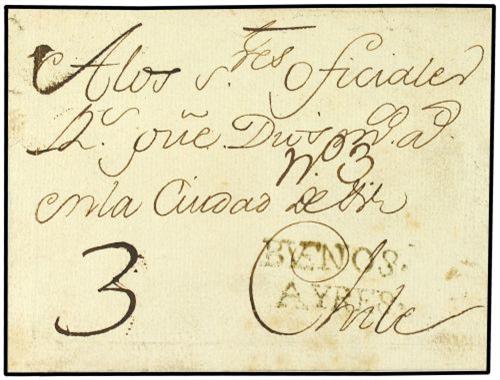 A los S.res Oficiales
R.s que Dios m.s a.s
N.o 3
en la Ciudad de
3
BVENOS.
AYRES.
Chile